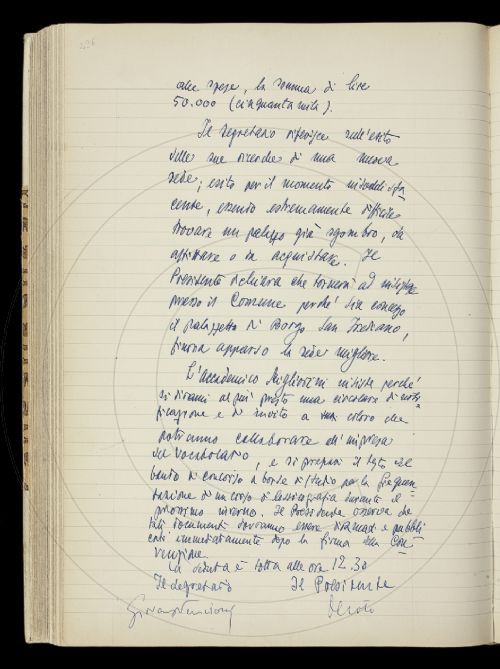 alle spese, la somma di lire
50.000 (cinquantamila).
Il segretario riferisce sull'esito
delle sue ricerche di una nuova
sede; esito per il momento insoddisfa
cente, essendo estremamente difficile
trovare un palazzo già sgombro, da
affittare o da acquistare. Il
Presidente dichiara che tornerà ad insistere
presso il Comune perché sia concesso
il palazzetto di Borgo San Frediano,
finora apparso la sede migliore.
L'Accademico Migliorini insiste perché
si dirami al più presto una circolare di noti
ficazione e di invito a coloro che
potranno collaborare all'impresa
del vocabolario, e si prepari il testo del
bando di concorso a borse di studio per la frequen
tazione di un corso di lessicografia durante il
prossimo inverno. Il Presidente osserva che
tali documenti dovranno essere diramati e pubbli
cati immediatamente dopo la firma della Con
venzione.
La seduta è tolta alle ore 12.30
Il Segretario Il Presidente
Giovanni Nencioni Devoto